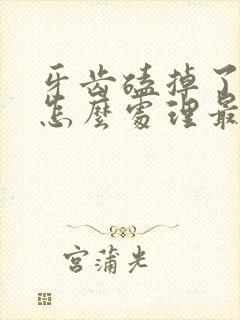 牙齿磕掉了
怎麼處理最
宮蒲光